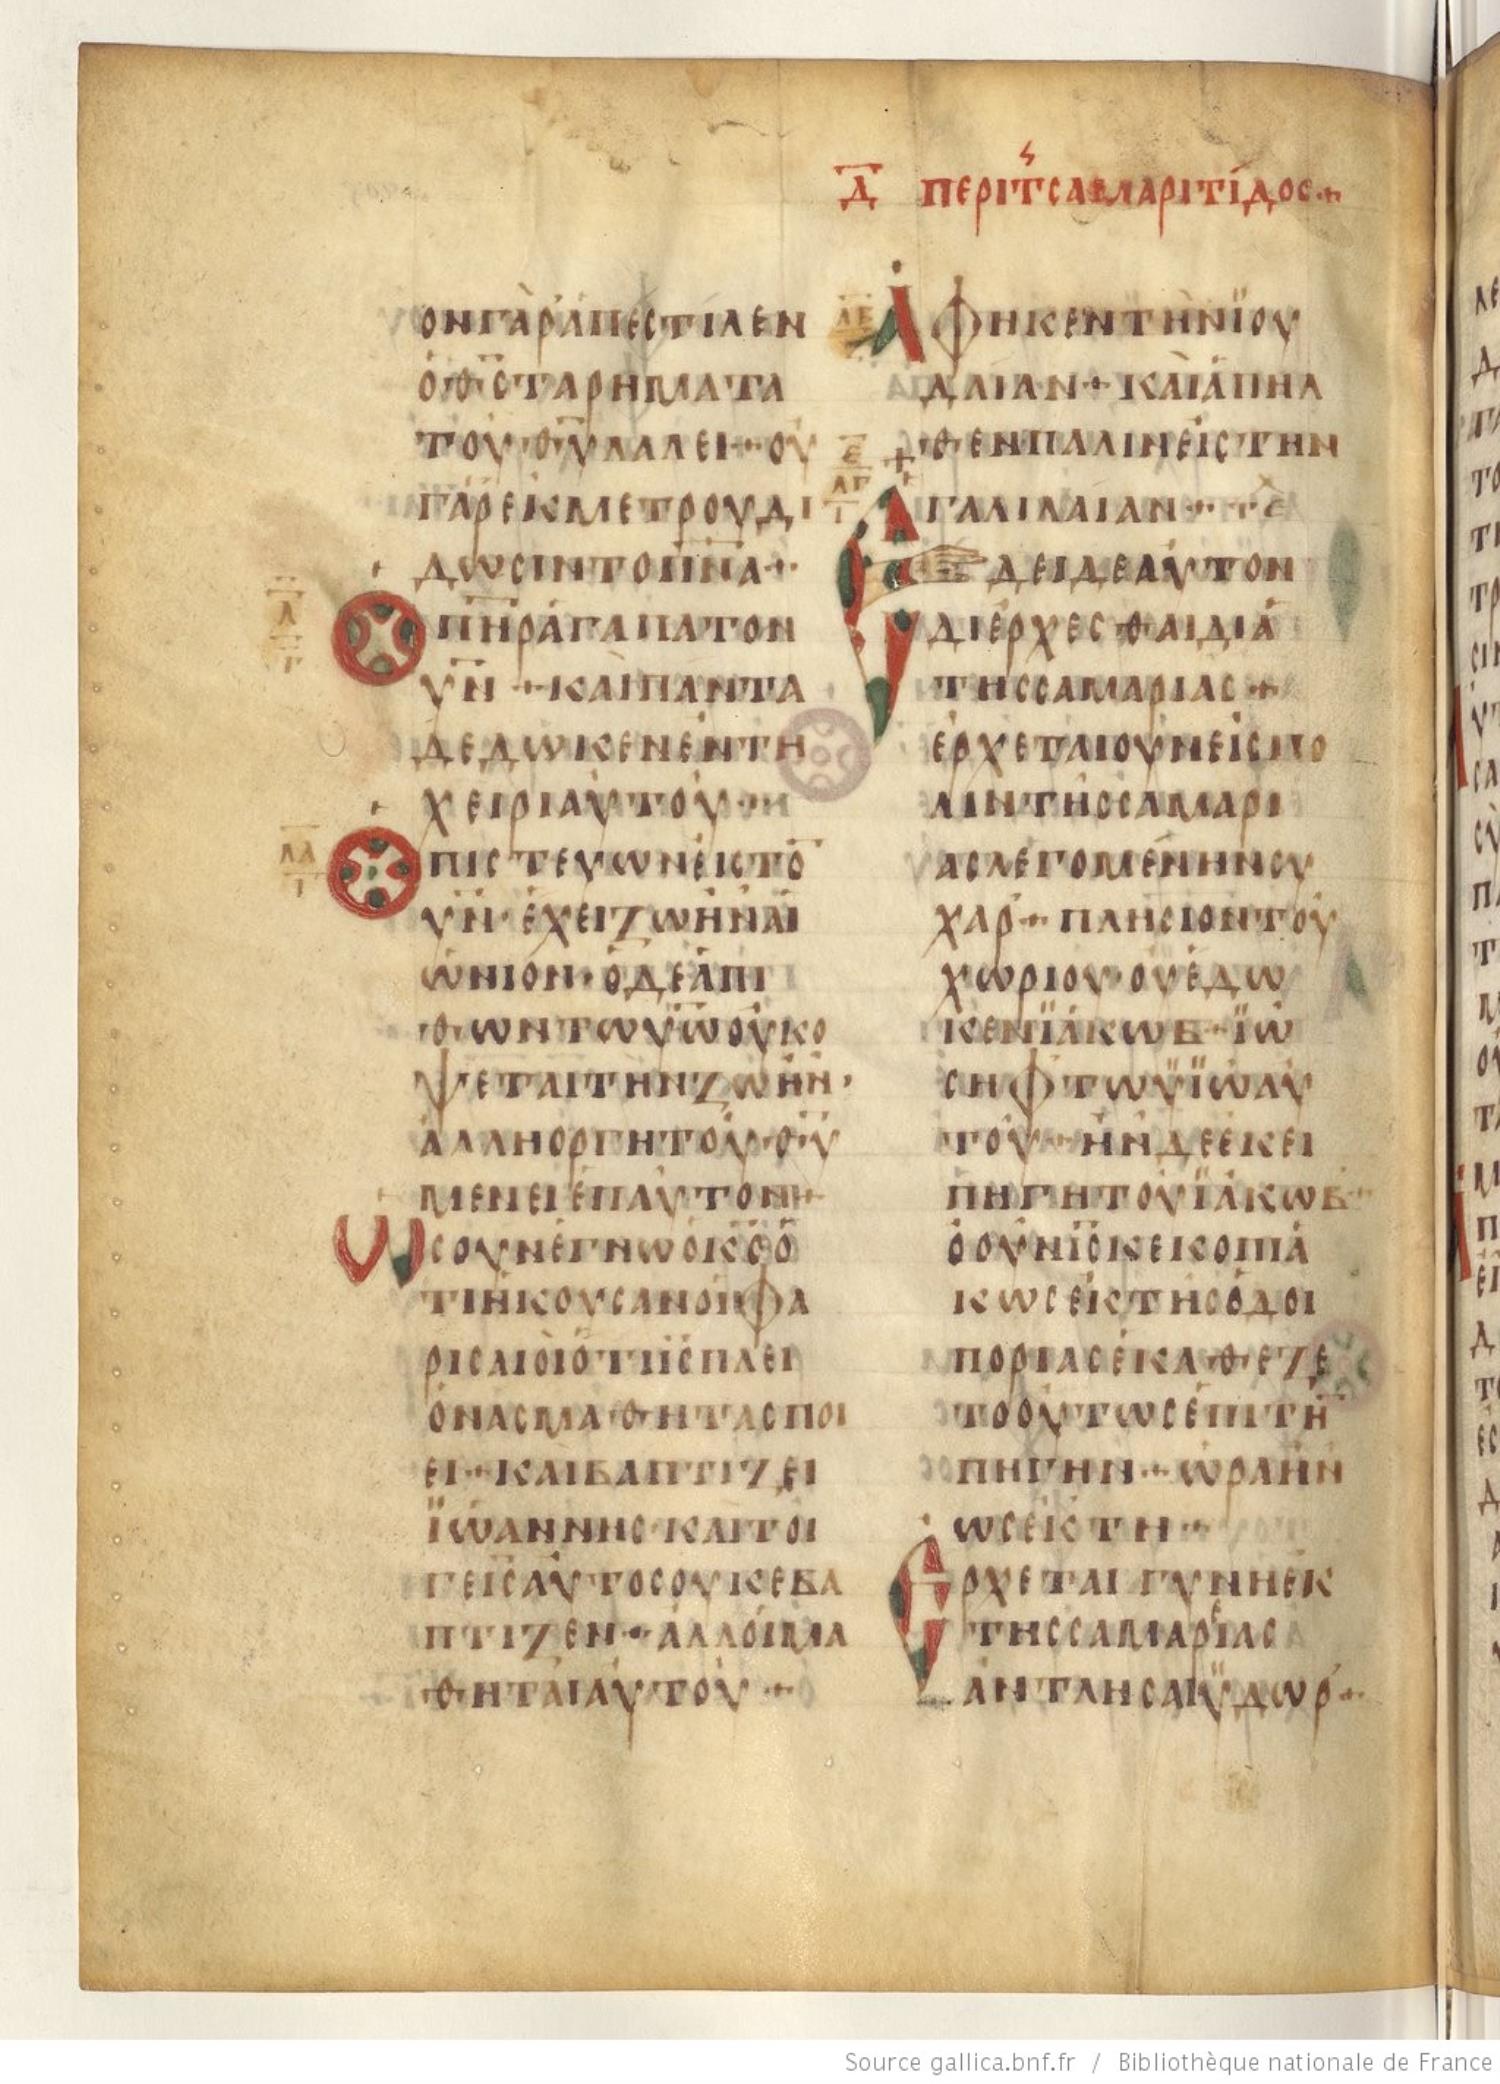 Δ ΠΕΡΙ ΤΣ СΑΜΑΡΙΤΙΔΟС
ΟΝΓΑΡΑΠΕСΤΙΛΕΝ
ΟΘСΤΑΡΗΜΑΤΑ
ΤΟΥΘΥΛΑΛΕΙ + ΟΥ
ΓΑΡΕΚΜΕΤΡΟΥΔΙ
ΔΩСΙΝΤΟΠΝΑ +
Λ
Γ
ΟΠΗΡΑΓΑΠΑΤΟΝ
ΥΝ + ΚΑΙΠΑΝΤΑ
ΔΕΔΩΚΕΝΕΝΤΗ
ΧΕΙΡΙΑΥΤΟΥ
ΛΑ
Ι
ΟΠΙСΤΕΥΩΝΕΙСΤΟ
ΥΝ ΕΧΕΙΖΩΗΝΑΙ
ΩΝΙΟΝ · ΟΔΕΑΠΙ
ΘΩΝΤΩΥΩΟΥΚΟ
ΨΕΤΑΙΤΗΝΖΩΗΝ ·
ΑΛΛΗΟΡΓΗΤΟΥΘΥ
ΜΕΝΕΙΕΠΑΥΤΟΝ +
ΩСΟΥΝΕΓΝΩΟΚСΟ
ΤΙΗΚΟΥСΑΝΟΙΦΑ
ΡΙСΑΙΟΙΟΤΙΙСΠΛΕΙ
ΟΝΑСΜΑΘΗΤΑСΠΟΙ
ΕΙ + ΚΑΙΒΑΠΤΙΖΕΙ
ΪΩΑΝΝΗС ΚΑΙΤΟΙ
ΓΕΙСΑΥΤΟСΟΥΚΕΒΑ
ΠΤΙΖΕΝ + ΑΛΛΟΙΜΑ
ΘΗΤΑΙΑΥΤΟΥ +
ΛΒ
ΑΦΗΚΕΝΤΗΝΪΟΥ
ΔΑΙΑΝ + ΚΑΙΑΠΗΛ
ΘΕΝΠΑΛΙΝΕΙСΤΗΝ
Ε
ΛΓ
Ι
ΓΑΛΙΛΑΙΑΝ + ΤΕ
ΕΔΕΙΔΕΑΥΤΟΝ
ΔΙΕΡΧΕСΘΑΙΔΙΑ
ΤΗССΑΜΑΡΙΑС +
ΕΡΧΕΤΑΙΟΥΝΕΙСΠΟ
ΛΙΝΤΗССΑΜΑΡΙ
ΑСΛΕΓΟΜΕΝΗΝСΥ
ΧΑΡ + ΠΛΗСΙΟΝΤΟΥ
ΧΩΡΙΟΥ · ΟΥΕΔΩ
ΚΕΝΪΑΚΩΒ + ΪΩ
СΗΦΤΩΥΪΩΑΥ
ΤΟΥ + ΗΝΔΕΕΚΕΙ
ΠΗΓΗΤΟΥΪΑΚΩΒ +
ΟΟΥΝΙСΚΕΚΟΠΙΑ
ΚΩСΕΚΤΗСΟΔΟΙ
ΠΟΡΙΑСΕΚΑΘΕΖΕ
ΤΟΟΥΤΩСΕΠΙΤΗ
ΠΗΓΗΝ + ΩΡΑΗΝ
ΩСΕΙΕΚΤΗ +
ΕΡΧΕΤΑΙ ΓΥΝΗΕΚ
ΤΗССΑΜΑΡΕΙΑС
ΑΝΤΛΗСΑΙΫΔΩΡ +
Source gallica.bnf.fr / Bibliothèque nationale de France